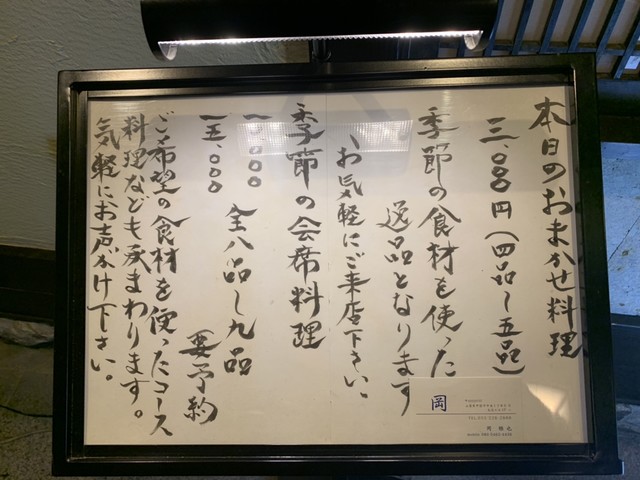 本日のおまかせ料理
三、〇〇〇円(四品〜五品)
季節の食材を使った
逸品となります
お気軽にご来店下さい、
季節の会席料理
一〇、〇〇〇
一五、〇〇〇
全八品〜九品
要予約
ご希望の食材を使ったコース
料理なども承まわります。
気軽にお声かけ下さい。
岡